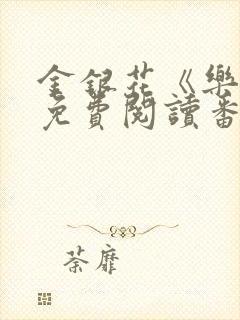 金銀花《樂
免費閱讀番
荼靡